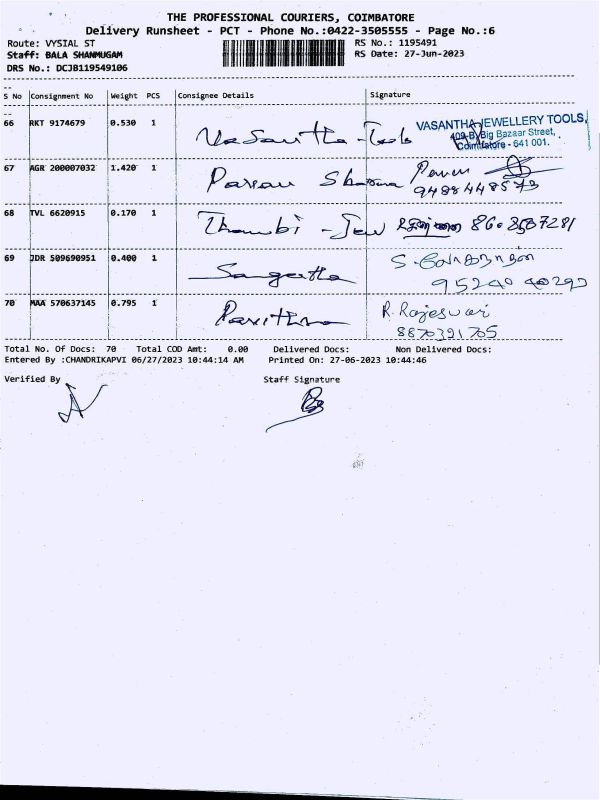 THE PROFESSIONAL COURIERS, COIMBATORE
Delivery Runsheet - PCT - Phone No.:0422-3505555 - Page No.:6
Route: VYSIAL ST RS No.: 1195491
Staff: BALA SHANMUGAM RS Date: 27-Jun-2023
DRS No.: DCJB119549106
S No Consignment No Weight PCS Consignee Details Signature
66 RKT 9174679 0.530 1 Vasantha - Tools VASANTHA JEWELLERY TOOLS,
409-B, Big Bazaar Street,
Coimbatore - 641 001.
67 AGR 200007032 1.420 1 Pavan Sharma Pavan
9488448573
68 TVL 6620915 0.170 1 Thambi - Jew 8608567281
69 JDR 509690951 0.400 1 Sangeetha S.
95240 40292
70 MAA 570637145 0.795 1 Pavithra R. Rajeswari
8870391705
Total No. Of Docs: 70 Total COD Amt: 0.00 Delivered Docs: Non Delivered Docs:
Entered By :CHANDRIKAPVI 06/27/2023 10:44:14 AM Printed On: 27-06-2023 10:44:46
Verified By Staff Signature